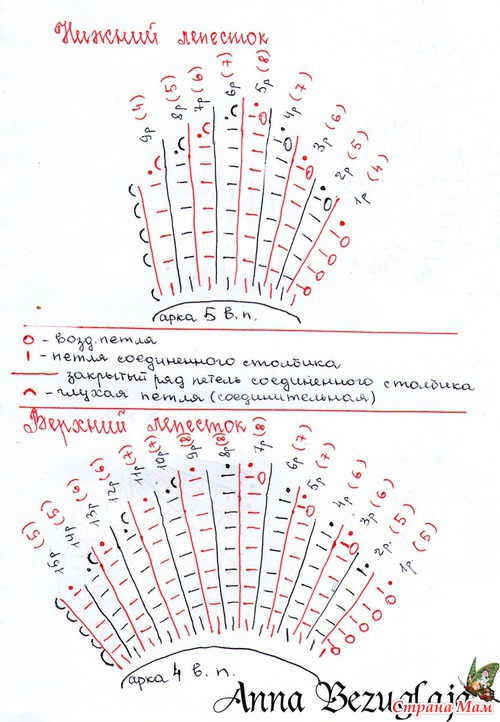 Нижний лепесток
9р (4) 8р (5) 7р (6) 6р (7) 5р (8) 4р (7) 3р (6) 2р (5) 1р (4)
арка 5 в.п.
- возд. петля
- петля соединенного столбика
закрытый ряд петель соединенного столбика
- глухая петля (соединительная)
Верхний лепесток
15р (5) 14р (5) 13р (6) 12р (6) 11р (7) 10р (7) 9р (8) 8р (8) 7р (8) 6р (7) 5р (7) 4р (6) 3р (6) 2р. (5) 1р. (5)
арка 4 в.п.
Anna Bezuglaja
Страна Мам